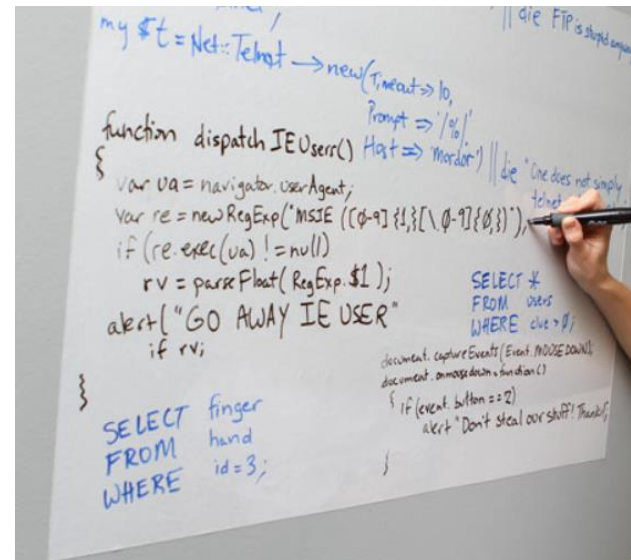 || die FTP is stupid
my $t = Net::Telnet -> new(Timeout => 10,
Prompt => '/%/'
Host => 'mordor') || die "One does not simply
telnet
function dispatchIEUsers()
{
var ua = navigator.userAgent;
var re = new RegExp("MSIE ([0-9]{1,}[\.0-9]{0,})");
if (re.exec(ua) != null)
rv = parseFloat(RegExp.$1);
alert("GO AWAY IE USER"
if rv;
}
SELECT *
FROM users
WHERE clue > 0;
document.captureEvents(Event.MOUSEDOWN);
document.onmousedown = function()
{ if (event.button == 2)
alert "Don't steal our stuff! Thanks!";
}
SELECT finger
FROM hand
WHERE id = 3;